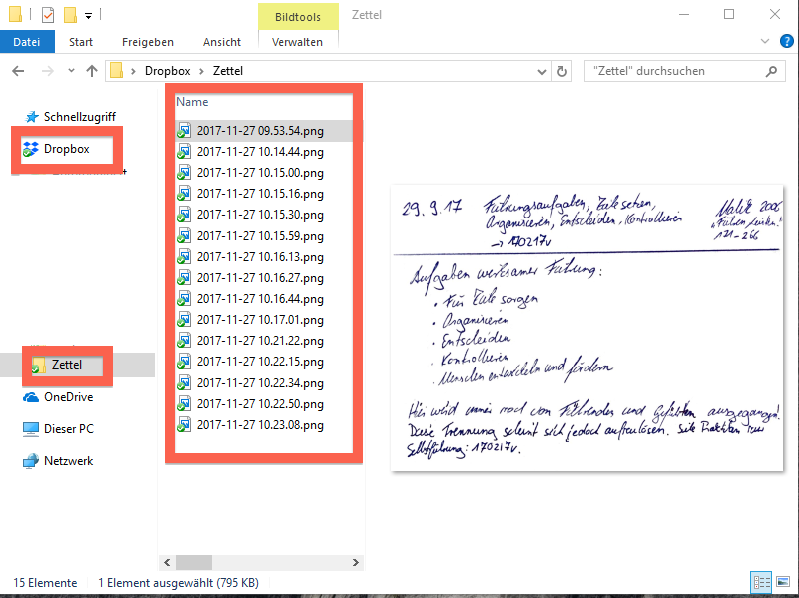 Bildtools
Zettel
Datei
Start
Freigeben
Ansicht
Verwalten
?
Dropbox > Zettel
"Zettel" durchsuchen
Schnellzugriff
Dropbox
Zettel
OneDrive
Dieser PC
Netzwerk
Name
2017-11-27 09.53.54.png
2017-11-27 10.14.44.png
2017-11-27 10.15.00.png
2017-11-27 10.15.16.png
2017-11-27 10.15.30.png
2017-11-27 10.15.59.png
2017-11-27 10.16.13.png
2017-11-27 10.16.27.png
2017-11-27 10.16.44.png
2017-11-27 10.17.01.png
2017-11-27 10.21.22.png
2017-11-27 10.22.15.png
2017-11-27 10.22.34.png
2017-11-27 10.22.50.png
2017-11-27 10.23.08.png
29.9.17 Führungsaufgaben, Ziele setzen, Malik 2006
Organisieren, Entscheiden, Kontrollieren "Führen
→ 170217v
Aufgaben wirksamer Führung:
• Für Ziele sorgen
• Organisieren
• Entscheiden
• Kontrollieren
• Menschen entwickeln und fördern
Hier wird immer noch von Führenden und Geführten ausgegangen!
Diese Trennung scheint sich jedoch aufzulösen. Siehe zur
Selbstführung: 170217v.
15 Elemente
1 Element ausgewählt (795 KB)